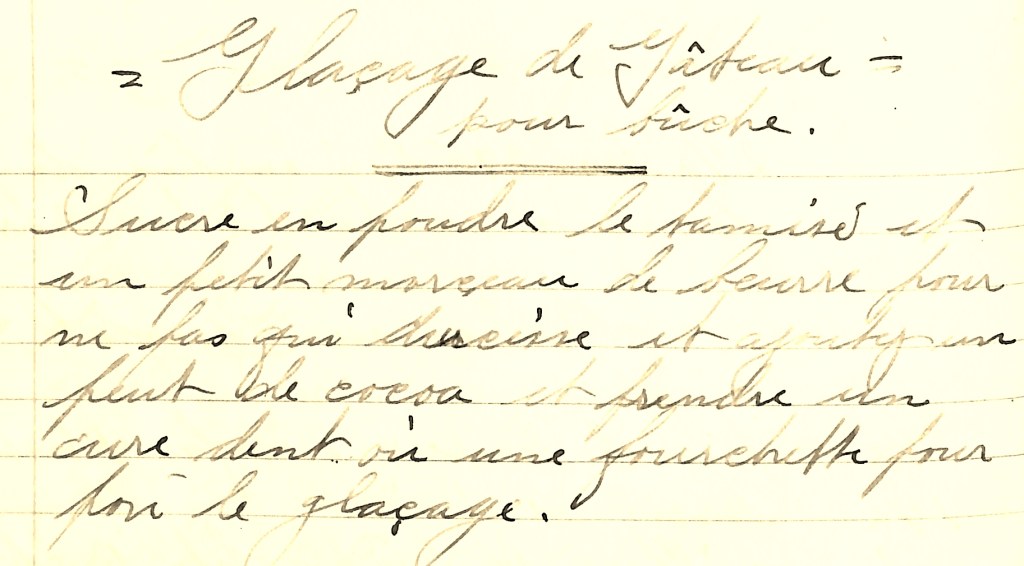 = Glaçage de Gâteau =
pour bûche.
Sucre en poudre le tamisé et
un petit morçeau de beurre pour
ne pas qui durcisse et ajoutez un
peut de cocoa et prendre un
cure dent où une fourchette pour
le glaçage.